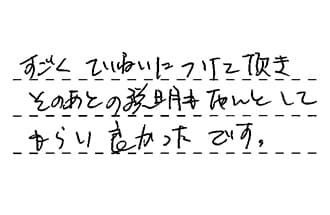 すごくていねいにつけて頂き
そのあとの説明もちゃんとして
もらい良かったです。